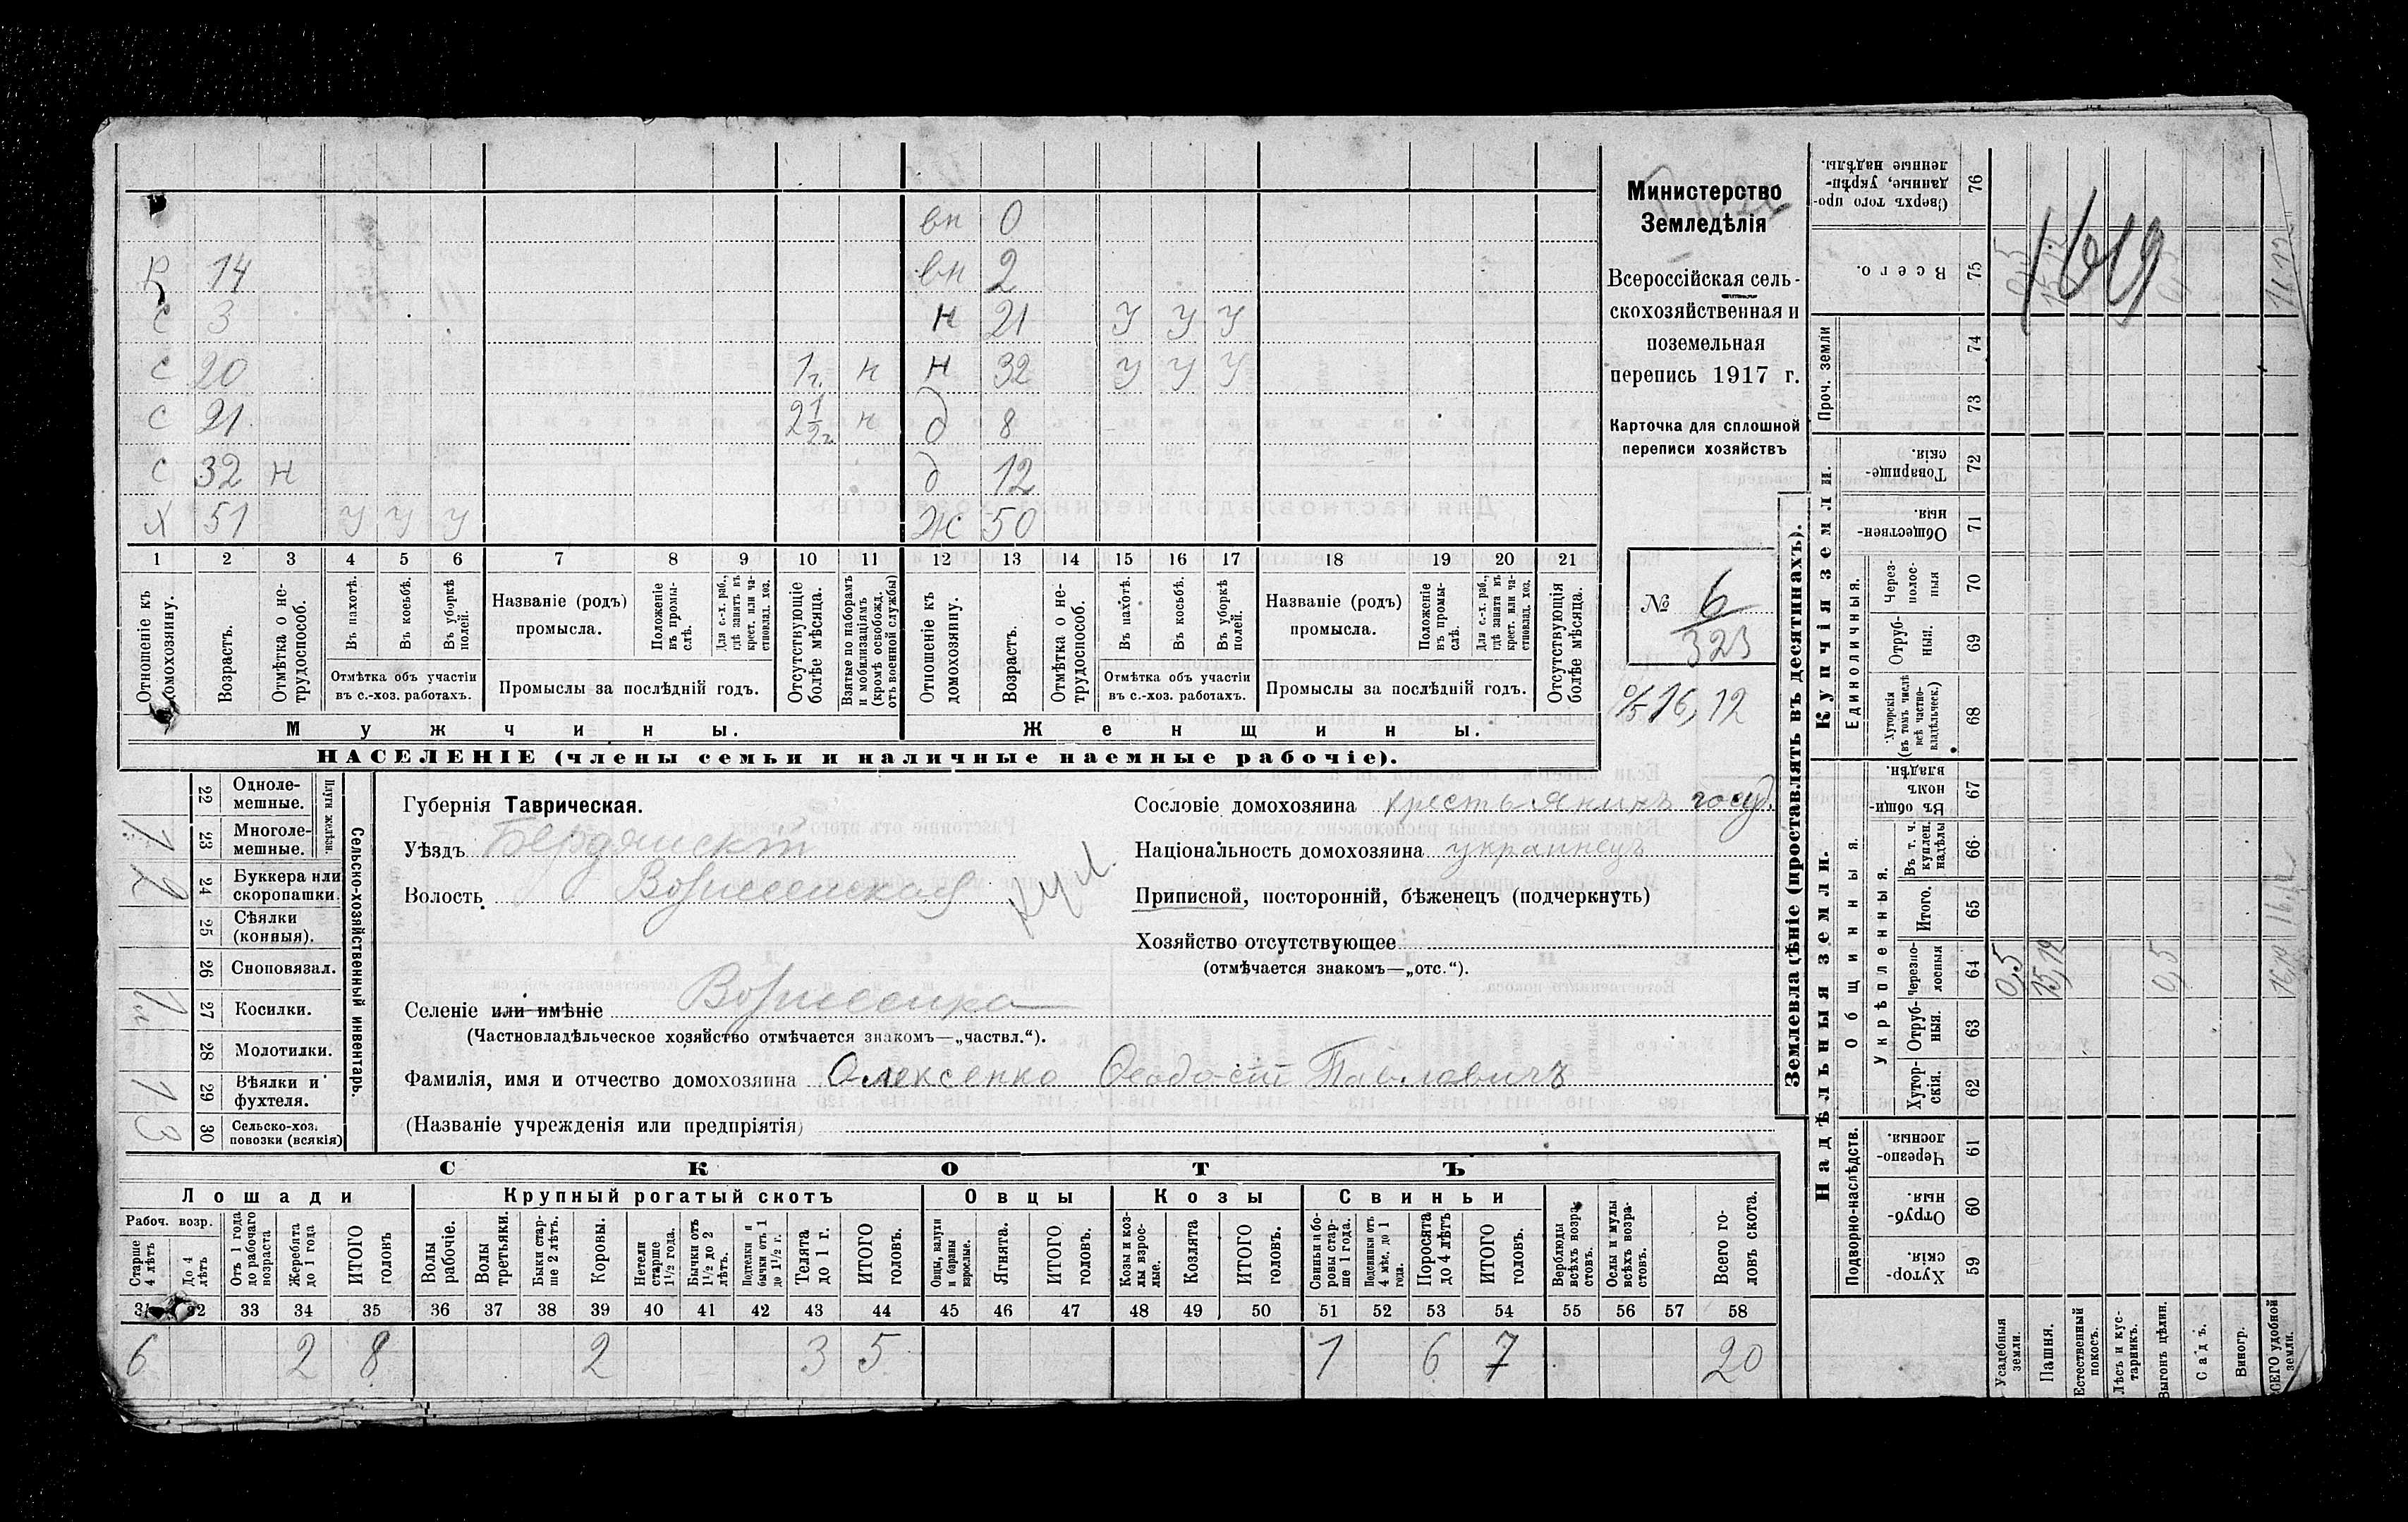 вп 0
Р 14 вп 2
С 3 н 21 У У У
С 20 1 г. н н 32 У У У
С 21 2 1/2 г. н д 8
С 32 н д 12
Х 51 У У У Ж 50
1 2 3 4 5 6 7 8 9 10 11 12 13 14 15 16 17 18 19 20 21
Отношеніе къ домохозяину.
Возрастъ.
Отмѣтка о не-
трудоспособ.
Въ пахотѣ.
Въ косьбѣ.
Въ уборкѣ
полей.
Отмѣтка объ участіи
въ с.-хоз. работахъ.
Названіе (родъ)
промысла.
Положеніе
въ промы-
слѣ.
Для с.-х. раб.,
гдѣ занятъ въ
крест. или ча-
стновлад. хоз.
Промыслы за послѣдній годъ.
Отсутствующіе
болѣе мѣсяца.
Взятые по наборамъ
и мобилизаціямъ
(кромѣ освобожд.
отъ военной службы)
Отношеніе къ
домохозяину.
Возрастъ.
Отмѣтка о не-
трудоспособ.
Въ пахотѣ.
Въ косьбѣ.
Въ уборкѣ
полей.
Отмѣтка объ участіи
въ с.-хоз. работахъ.
Названіе (родъ)
промысла.
Положеніе
въ промы-
слѣ.
Для с.-х. раб.,
гдѣ занята въ
крест. или ча-
стновлад. хоз.
Промыслы за послѣдній годъ.
Отсутствующія
болѣе мѣсяца.
Мужчины. Женщины.
НАСЕЛЕНІЕ (члены семьи и наличные наемные рабочіе).
Министерство
Земледѣлія
Всероссійская сель-
скохозяйственная и
поземельная
перепись 1917 г.
Карточка для сплошной
переписи хозяйствъ
№ 6
323
16,12
22 Одноле-
мешные.
1 23 Многоле-
мешные.
Плуги желѣзн.
2 24 Буккера или
скоропашки.
25 Сѣялки
(конныя).
26 Сноповязал.
27 Косилки.
28 Молотилки.
1 29 Вѣялки и
фухтеля.
3 30 Сельско-хоз.
повозки (всякія)
Сельско-хозяйственный инвентарь.
Губернія Таврическая.
Уѣздъ Бердянскій
Волость Вознесенская
Селеніе или имѣніе Вознесенка
(Частновладѣльческое хозяйство отмѣчается знакомъ—„частвл.“).
Фамилія, имя и отчество домохозяина Олексенко Феодосій Павловичъ
(Названіе учрежденія или предпріятія)
Сословіе домохозяина крестьянинъ госуд.
Національность домохозяина украинецъ
Приписной, посторонній, бѣженецъ (подчеркнуть)
Хозяйство отсутствующее
(отмѣчается знакомъ—„отс.“).
СКОТЪ
Лошади Крупный рогатый скотъ Овцы Козы Свиньи
Рабоч. возр.
Старше
4 лѣтъ
До 4
лѣтъ
Отъ 1 года
до рабочаго
возраста
Жеребята
до 1 года
ИТОГО
головъ
Волы
рабочіе.
Волы
третьяки.
Быки стар-
ше 2 лѣтъ.
Коровы.
Нетели
старше
1½ года.
Бычки отъ
1½ до 2
лѣтъ.
Подтелки и
бычки отъ 1
до 1½ г.
Телята
до 1 г.
ИТОГО
головъ.
Овцы, валухи
и бараны
взрослые.
Ягнята.
ИТОГО
головъ.
Козы и коз-
лы взрос-
лые.
Козлята
ИТОГО
головъ.
Свиньи и бо-
ровы стар-
ше 1 года.
Подсвинки отъ
4 мѣс. до 1
года.
Поросята
до 4 лѣтъ
ИТОГО
головъ.
Верблюды
всѣхъ возра-
стовъ.
Ослы и мулы
всѣхъ возра-
стовъ.
Всего го-
ловъ скота.
31 32 33 34 35 36 37 38 39 40 41 42 43 44 45 46 47 48 49 50 51 52 53 54 55 56 57 58
6 2 8 2 3 5 1 6 7 20
Землевладѣніе (проставлять въ десятинахъ).
Сверхъ того про-
данные, укрѣп-
ленные надѣлы. 76
Всего. 75 0,5 15,12 0,5 16,12
169
Проч. земли 74
73
Купчія земли.
Товарище-
скія. 72
Обществен-
ныя. 71
Единоличныя.
Через-
полос-
ныя 70
Отруб-
ныя. 69
Хуторскія
(въ томъ числѣ
всѣ частно-
владѣльческ.) 68
Надѣльныя земли.
Общинныя.
Въ общин-
номъ
владѣн. 67
Укрѣпленныя.
Въ т. ч.
куплен.
надѣлы 66
Итого. 65 16,12
Черезпо-
лосныя 64 0,5 15,12 0,5 16,12
Отруб-
ныя. 63
Хутор-
скія. 62
Подворно-наслѣдств.
Черезпо-
лосныя. 61
Отруб-
ныя. 60
Хутор-
скія. 59
Усадебныя
земли.
Пашня.
Естественный
покосъ.
Лѣсъ и кус-
тарникъ.
Выгонъ цѣлин.
Садъ.
Виногр.
ВСЕГО удобной
земли.